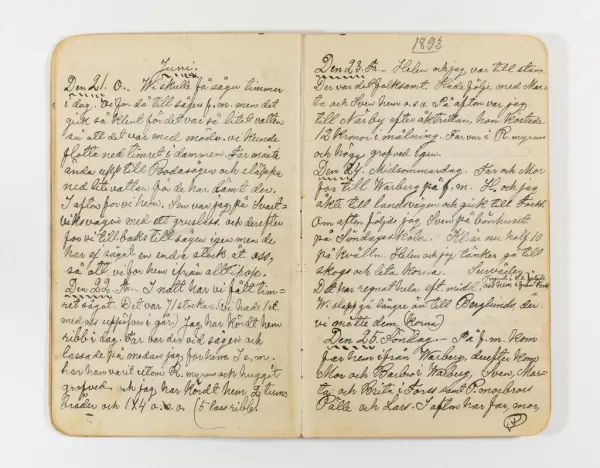 Juni.
Den 21. O. Vi skulle få sågu timmer
i dag. Vi for då till sågen f.m. men det
gick så klent för det var så litet vatten
så att det var med möda vi kunde
flotta ned timret i dammen. Far måste
ända upp till Bodasågen och släppa
ned lite vatten för de har dämt der.
I afton for vi hem. Sen var jag på Svart-
viksvägen med ett gruslass. och derefter
for vi tillbaks till sågen igen men de
har ej sågat en enda stock åt oss,
så att vi for hem ifrån alltihop.
Den 22. Th. I natt har vi fått tim-
ret sågat. Det var 71 stockar. (vi hade 1 st.
med oss uppifrån i går) Jag har kördt hem
ribb i dag. Far var der vid sågen och
lassade på medan jag for hem. I e.m.
har han varit uti R. myren och huggit
grofved. och jag har kördt hem 2 tums
bräder och 1X4 o.s.v. (5 lass ribb.
1893.
Den 23. Fr. Helen och jag var till stan.
Der var det folksamt. Hade följe med Mar-
ta och Sven hem o.s.v. På afton var jag
till Närby efter åktrillan, hon kostade
12 kronor i målning. Far var i R. myren
och högg grofved igen.
Den 24. Midsommardag. Far och Mor
for till Warberg på f.m. H. och jag
åkte till landsvägen och gick till Torss.
Om afton följde jag Sven på bönhuset
på Söndagsskola. Kl. är nu half 10
på kvälln. Helen och jag tänker gå till
skogs och leta korna.
Det har regnat hela eft. midd.
Vi slapp gå längre än till Berglunds, der
vi mötte dem, (korna)
Den 25. Söndag. På f.m. kom
far hem ifrån Warberg, derefter kom
Mor och Barbro i Warberg, Sven, Mar-
ta, och Brita i Torss samt P. morbrors
Palle och Lars. I afton har far, mor,